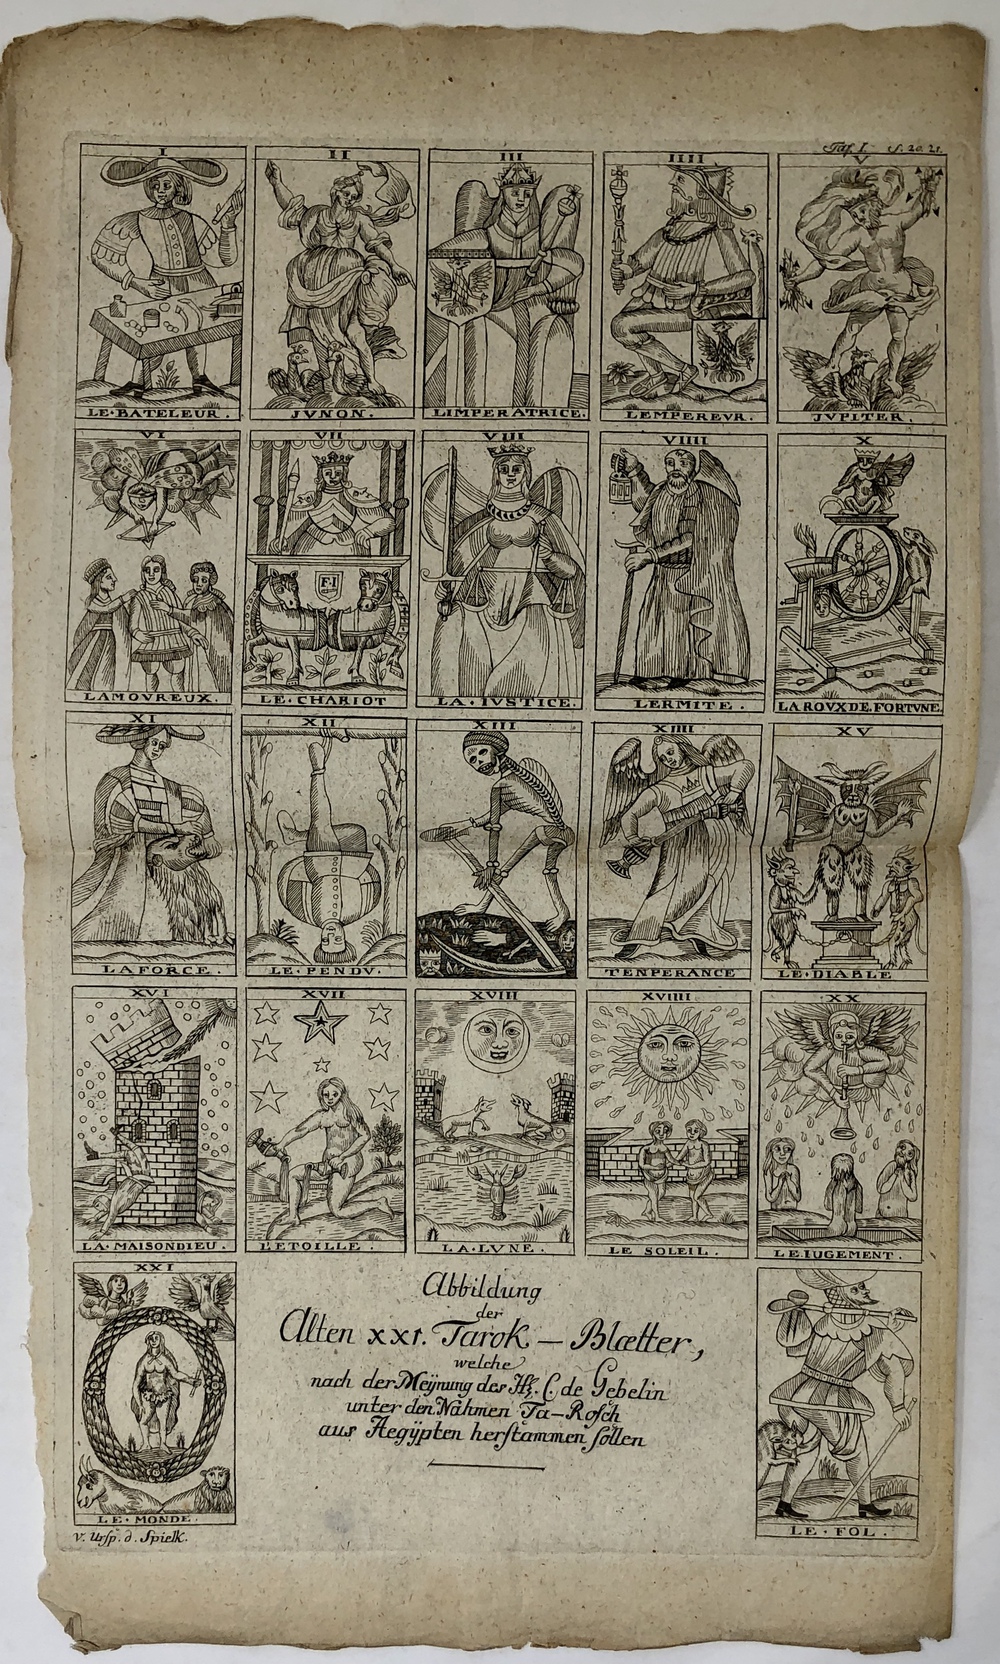 Taf. I. S. 20. 21.
I
II
III
IIII
V
LE·BATELEUR.
JVNON.
LIMPERATRICE.
LEMPEREVR.
JVPITER.
VI
VII
VIII
VIIII
X
F·I
LAMOVREUX.
LE·CHARIOT
LA·IVSTICE.
LERMITE.
LA ROVX DE. FORTVNE.
XI
XII
XIII
XIIII
XV
LAFORCE.
LE·PENDV.
TENPERANCE
LE·DIABLE
XVI
XVII
XVIII
XVIIII
XX
LA·MAISONDIEU.
L'ETOILLE.
LA·LVNE.
LE SOLEIL.
LE.IUGEMENT.
XXI
LE·MONDE.
Abbildung
der
Alten XXI. Tarok – Blætter,
welche
nach der Meÿnung des H. C. de Gebelin
unter den Nahmen Ta–Rosch
aus Aegÿpten herstammen sollen
LE·FOL.
v. Ursp. d. Spielk.